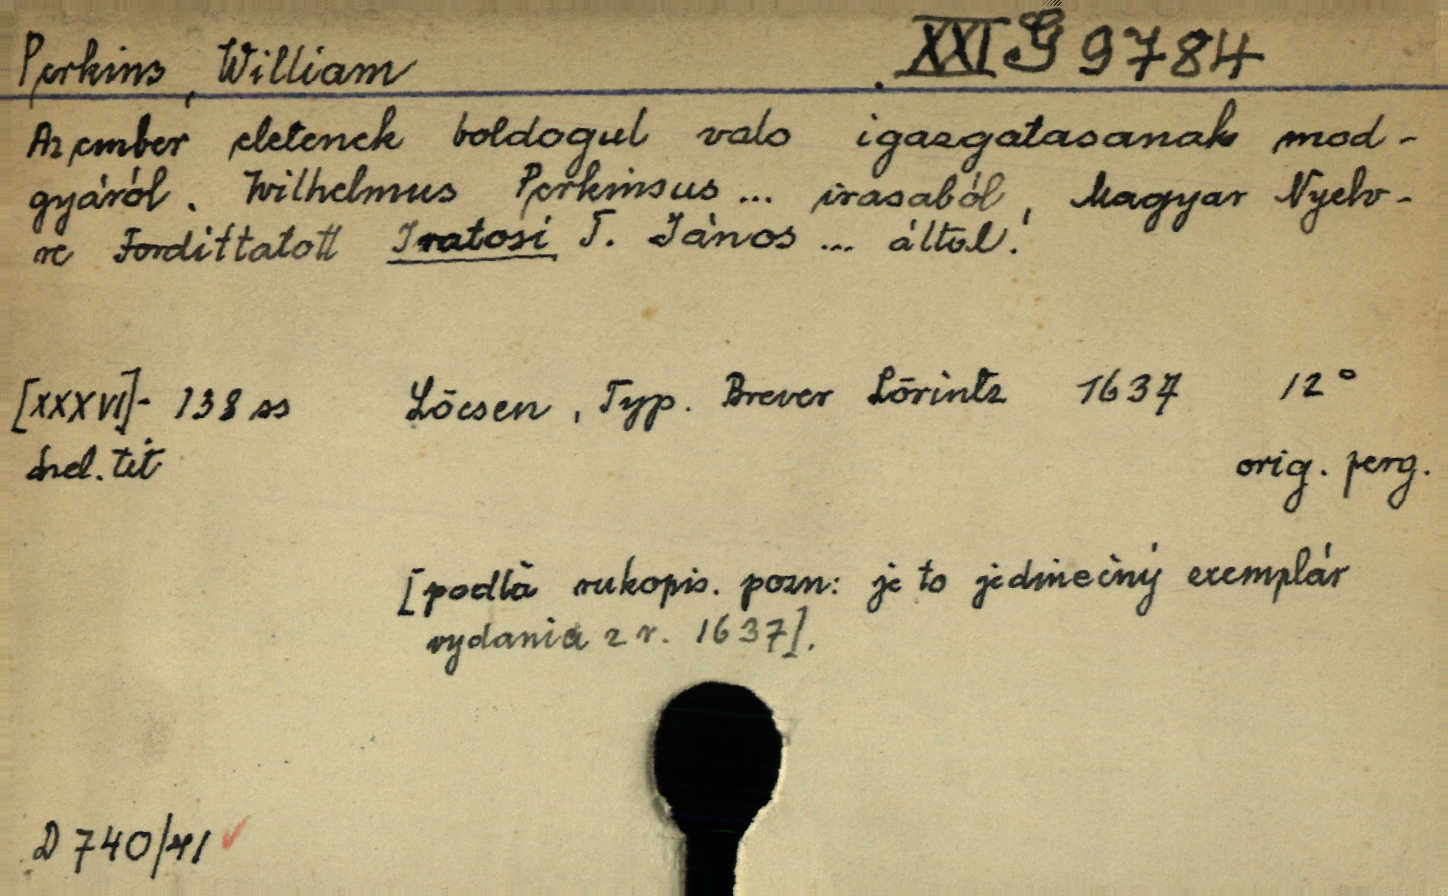 Perkins, William
XXI G 9784
Az ember eletenek boldogul valo igazgatasanak mod-
gyáról. Wilhelmus Perkinsus ... irasaból, Magyar Nyelv-
re Fordittatott Iratosi T. János ... által.
[XXXVI]- 138 ss Lőcsen, Typ. Brever Lőrintz 1637 12°
tit orig. perg.
[podľa rukopis. pozn: je to jedinečný exemplár
vydania z r. 1637].
D 740/41